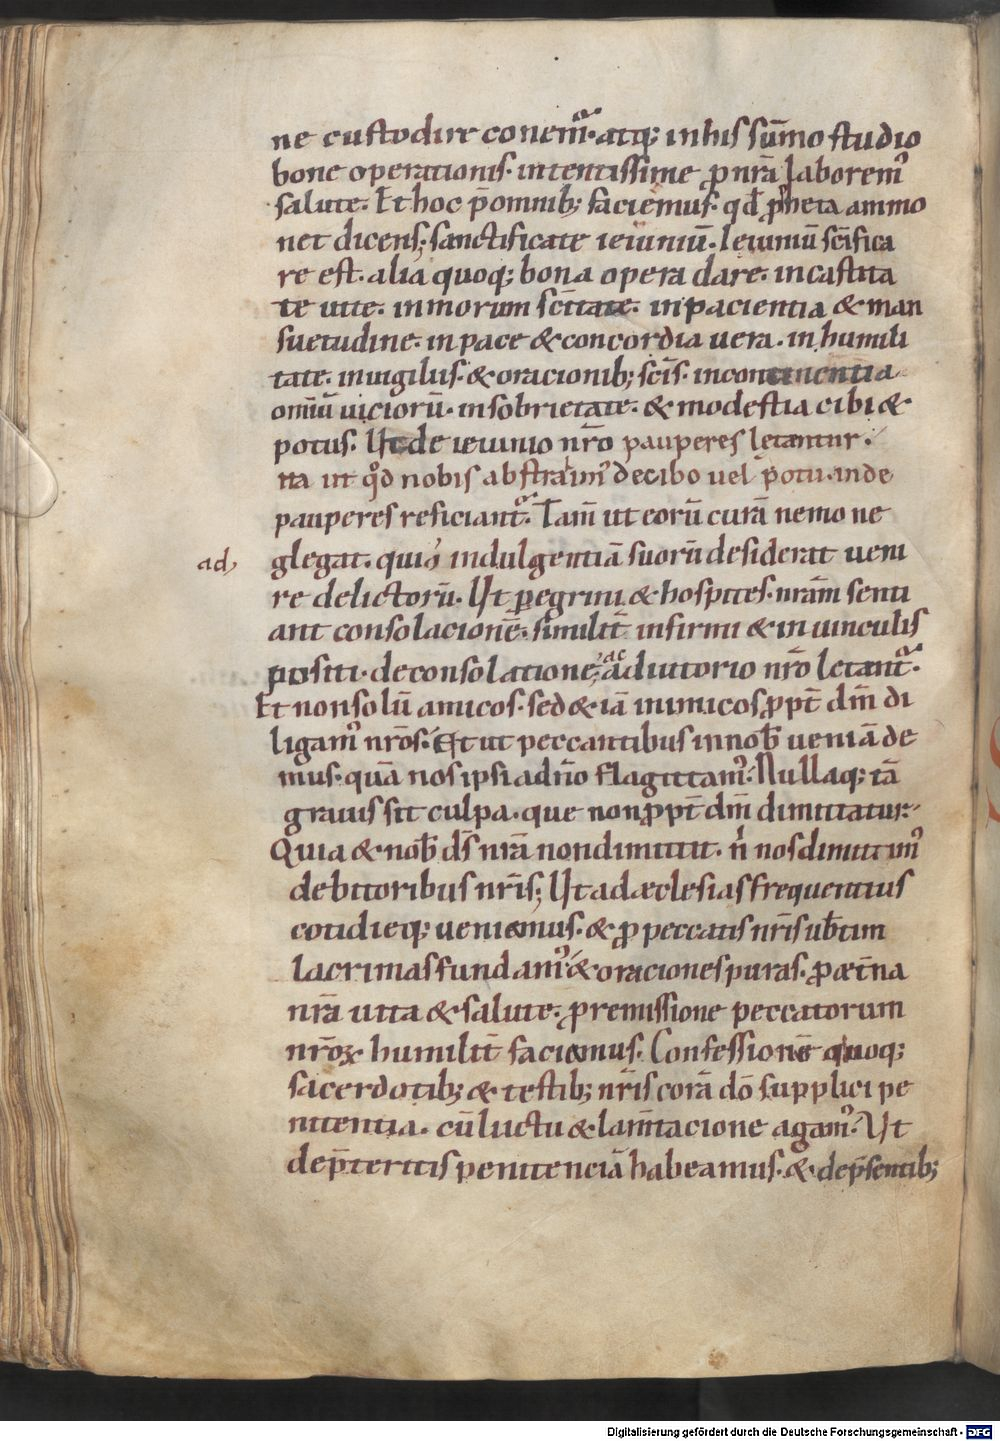 ne custodire conem̃ᷓ. atq; in his sũmo studio
bone operationis. intentissime ꝓ nr̃a laborem᾽
salute. Et hoc p̃ omnib; faciemus. qd̃ ꝓpheta ammo
net dicens; sanctificate ieiuniũ. Ieiuniũ sc̃ifica
re est. alia quoq; bona opera dare. in castita
te uite. in morum sc̃itate. in pacientia & man
suetudine. in pace & concordia uera. in humili
tate. in uigiliis. & oracionib; sc̃is. in continentia
omiũ uiciorũ. in sobrietate. & modestia cibi &
potus. Ut de ieiunio nr̃o pauperes letantur.
ita ut qͦd nobis abstraim᾽ de cibo uel potu. inde
pauperes reficiant̃ᷓ. Tam̃ ut eorũ curã nemo ne
ad,
glegat. quis indulgentiã suorũ desiderat ueni
re delictorũ. Ut ꝑegrini & hospites. nr̃am senti
ant consolacionẽ. similit̃ infirmi & in uinculis
positi. de consolatione, ac adiutorio nr̃o letant̃ᷓ.
Et non solũ amicos. sed & iã inimicos ꝓpt̃ dm̃ di
ligam᾽ nr̃os. Et ut peccantibus in nob̃ ueniã de
mus. quã nos ipsi a dño flagitam᾽. Nullaq; tã
grauis sit culpa. que non ꝓpt̃ dm̃ dimittatur.
Quia & nob̃ ds̃ nr̃a non dimittit. n̓ nos dimittim᾽
debitoribus nr̃is; Ut ad æclesias frequentius
cotidieq; ueniemus. & ꝓ peccatis nr̃is ub̃tim
lacrimas fundam᾽. & oraciones puras. ꝓ æt̃na
nr̃a uita & salute. ꝓ remissione peccatorum
nr̃oꝝ humilit̃ faciemus. Confessionẽ quoq;
sacerdotib; & testib; nr̃is corã dõ supplici pe
nitentia. cũ luctu & lam̃tacione agam᾽. Ut
de p̃teritis penitenciã habeamus. & de p̃sentib;
Digitalisierung gefördert durch die Deutsche Forschungsgemeinschaft - DFG